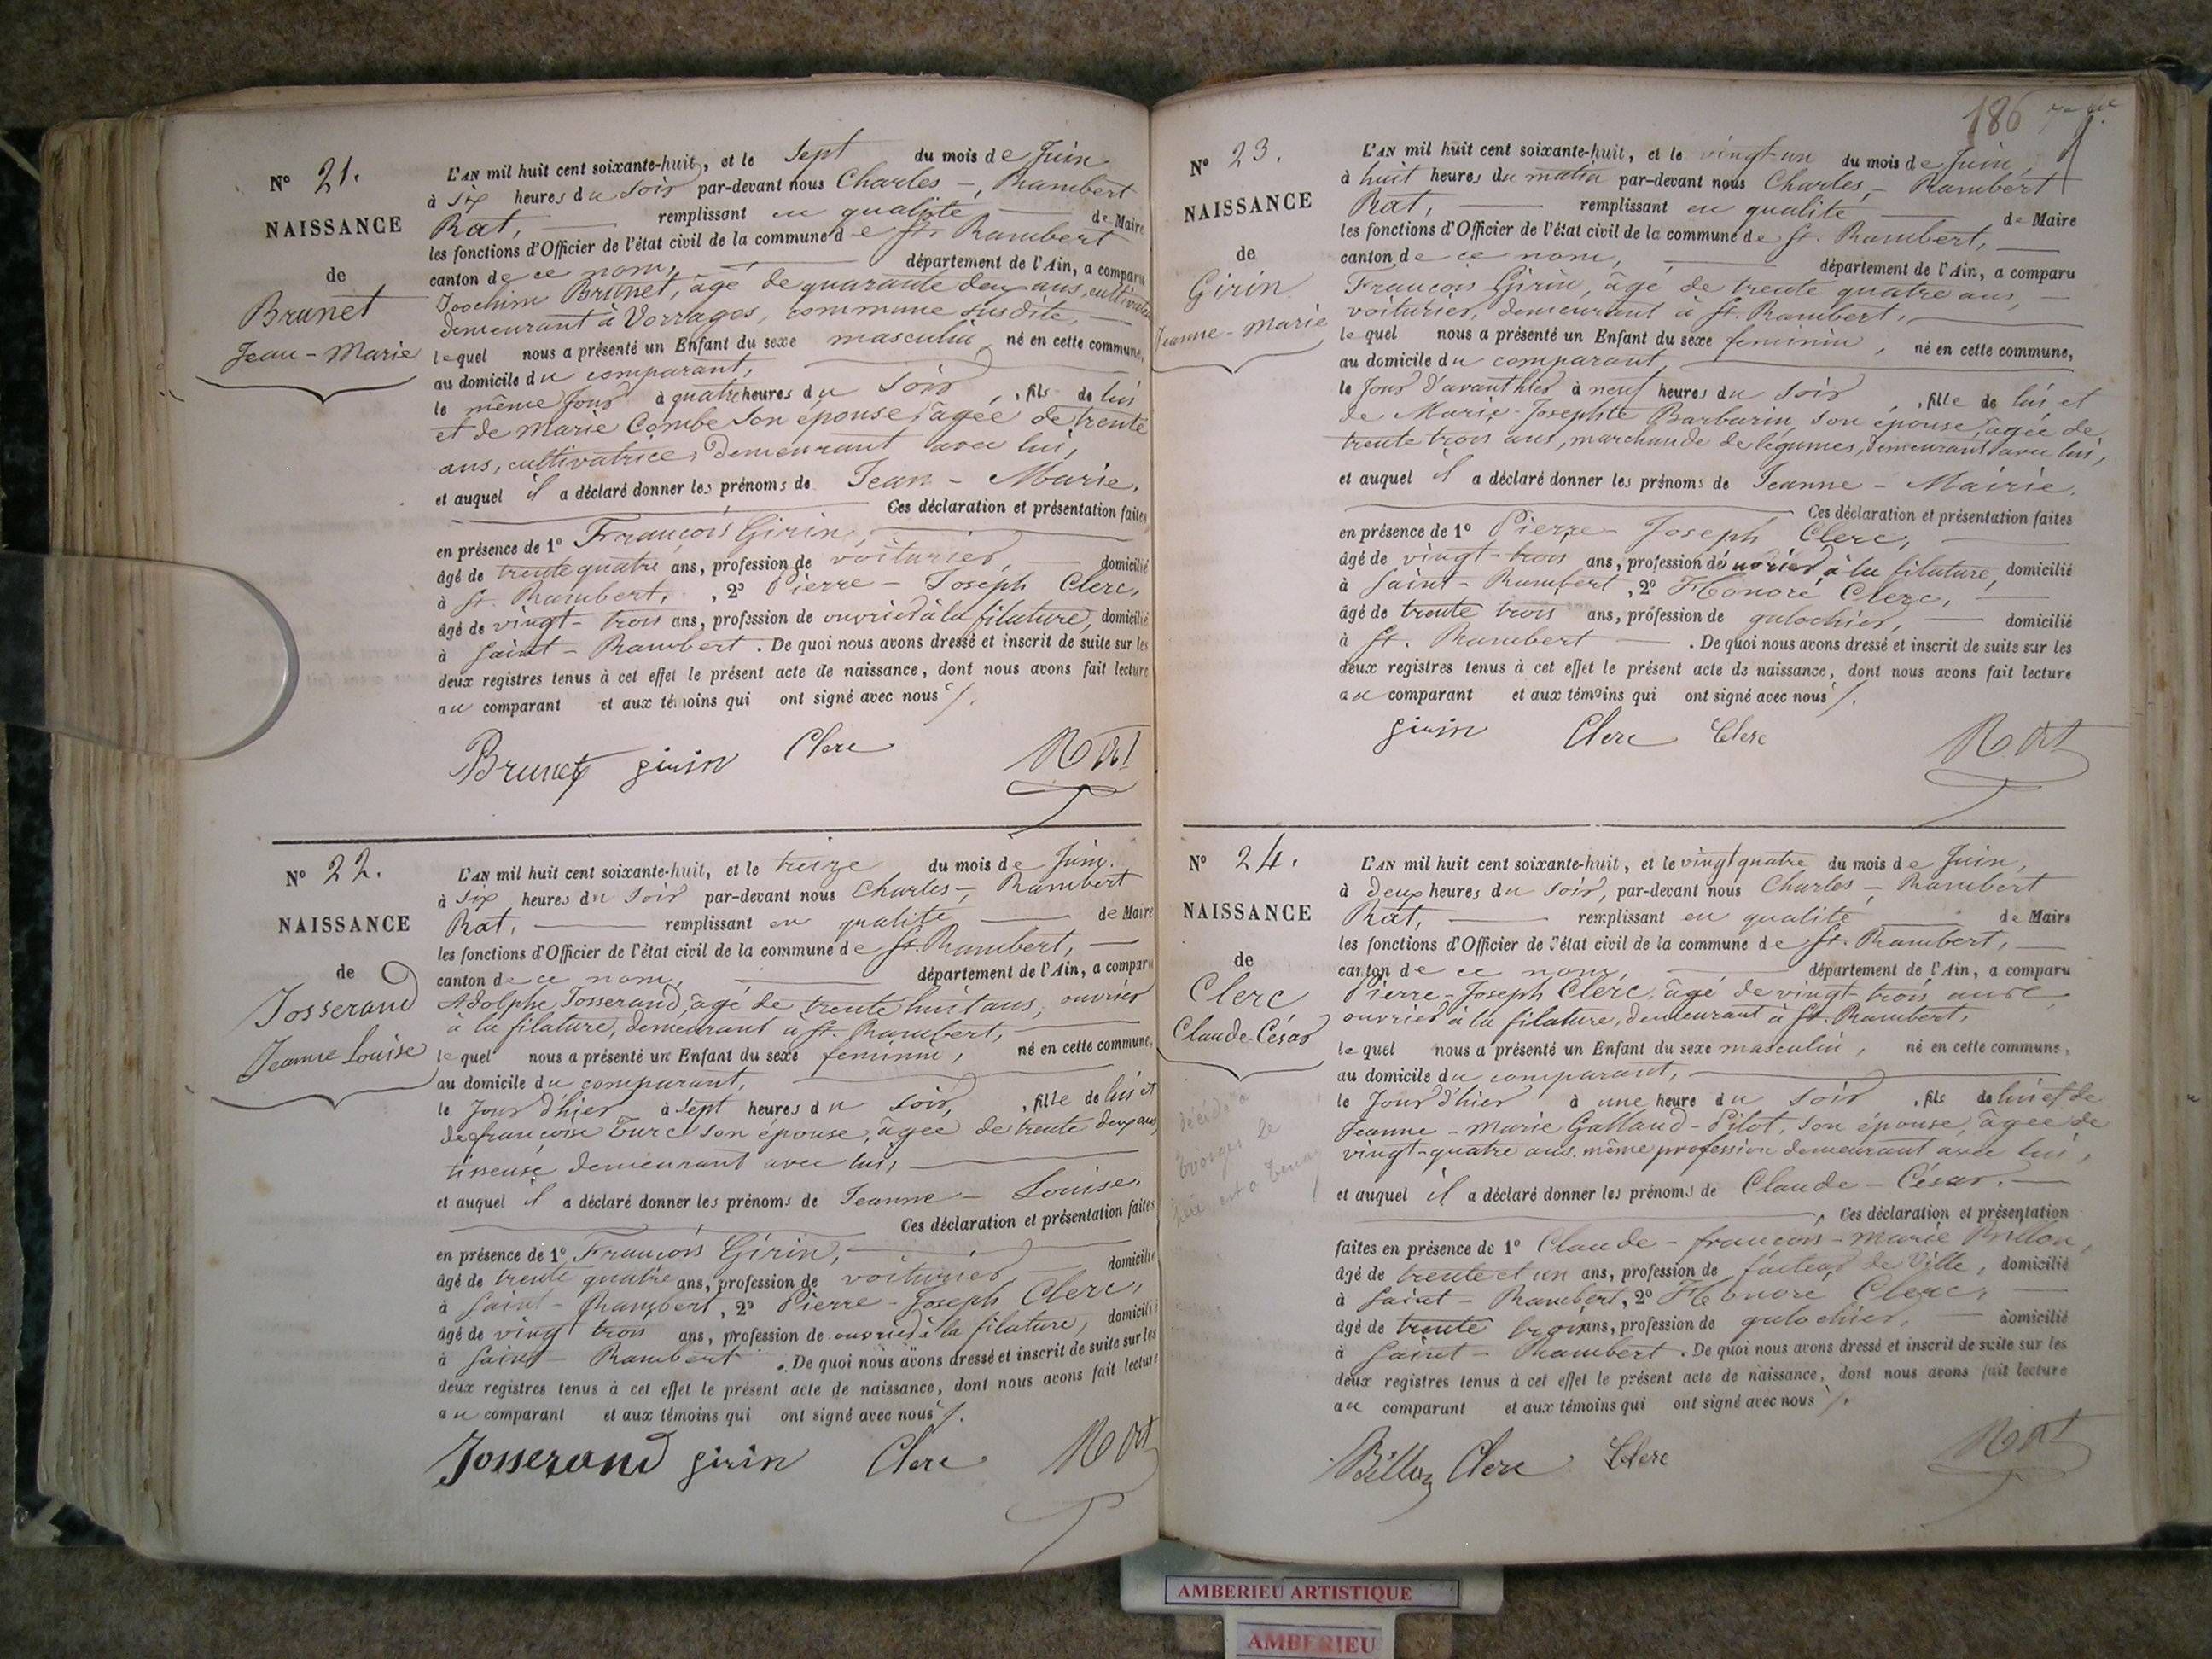 Nº 21.
NAISSANCE
de
Brunet
Jean-Marie
L'AN mil huit cent soixante-huit, et le Sept du mois de Juin
à six heures du Soir par-devant nous Charles-, Rambert
Rat, remplissant en qualité de Maire
les fonctions d'Officier de l'état civil de la commune de St. Rambert
canton de ce nom, département de l'Ain, a comparu
Joachim Brunet, âgé de quarante deux ans, cultivateur
demeurant à Vorrages, commune susdite,
lequel nous a présenté un Enfant du sexe masculin, né en cette commune,
au domicile du comparant,
le même jour à quatre heures du Soir, fils de lui
et de Marie Combe Son épouse, âgée de trente
ans, cultivatrice, demeurant avec lui,
et auquel il a déclaré donner les prénoms de Jean-Marie.
Ces déclaration et présentation faites
en présence de 1º François Girin,
âgé de trente quatre ans, profession de voiturier, domicilié
à St. Rambert, 2º Pierre-Joseph Clerc,
âgé de vingt-trois ans, profession de ouvrier à la filature, domicilié
à Saint-Rambert. De quoi nous avons dressé et inscrit de suite sur les
deux registres tenus à cet effet le présent acte de naissance, dont nous avons fait lecture
au comparant et aux témoins qui ont signé avec nous /.
Brunet girin Clerc Rat
Nº 22.
NAISSANCE
de
Josserand
Jeanne Louise
L'AN mil huit cent soixante-huit, et le treize du mois de Juin.
à six heures du Soir par-devant nous Charles-, Rambert
Rat, remplissant en qualité de Maire
les fonctions d'Officier de l'état civil de la commune de St. Rambert,
canton de ce nom, département de l'Ain, a comparu
Adolphe Josserand, âgé de trente huit ans, ouvrier
à la filature, demeurant à St. Rambert,
lequel nous a présenté un Enfant du sexe feminin, né en cette commune,
au domicile du comparant,
le Jour d'hier à Sept heures du Soir, fille de lui et
de françoise Turc son épouse, âgée de trente deux ans,
tisseuse demeurant avec lui,
et auquel il a déclaré donner les prénoms de Jeanne-Louise.
Ces déclaration et présentation faites
en présence de 1º François Girin,
âgé de trente quatre ans, profession de voiturier domicilié
à Saint-Rambert, 2º Pierre-Joseph Clerc,
âgé de vingt trois ans, profession de ouvrier à la filature, domicilié
à Saint-Rambert. De quoi nous avons dressé et inscrit de suite sur les
deux registres tenus à cet effet le présent acte de naissance, dont nous avons fait lecture
au comparant et aux témoins qui ont signé avec nous /.
Josserand girin Clerc Rat
186
Nº 23.
NAISSANCE
de
Girin
Jeanne-Marie
L'AN mil huit cent soixante-huit, et le vingt-un du mois de Juin,
à huit heures du matin par-devant nous Charles,- Rambert
Rat, remplissant en qualité de Maire
les fonctions d'Officier de l'état civil de la commune de St. Rambert,
canton de ce nom, département de l'Ain, a comparu
François Girin, âgé de trente quatre ans,
voiturier, demeurant à St. Rambert,
lequel nous a présenté un Enfant du sexe feminin, né en cette commune,
au domicile du comparant,
le Jour d'avanthier à neuf heures du Soir, fille de lui et
de Marie-Josephte Barbarin son épouse, âgée de
trente trois ans, marchande de légumes, demeurant avec lui,
et auquel il a déclaré donner les prénoms de Jeanne-Mairie.
Ces déclaration et présentation faites
en présence de 1º Pierre-Joseph Clerc,
âgé de vingt-trois ans, profession d'ouvrier à la filature, domicilié
à Saint-Rambert, 2º Honoré Clerc,
âgé de trente trois ans, profession de galochier, domicilié
à St. Rambert. De quoi nous avons dressé et inscrit de suite sur les
deux registres tenus à cet effet le présent acte de naissance, dont nous avons fait lecture
au comparant et aux témoins qui ont signé avec nous /.
girin Clerc Clerc Rat
Nº 24.
NAISSANCE
de
Clerc
Claude-César
L'AN mil huit cent soixante-huit, et le vingt quatre du mois de Juin,
à deux heures du Soir, par-devant nous Charles,- Rambert
Rat, remplissant en qualité de Maire
les fonctions d'Officier de l'état civil de la commune de St. Rambert,
canton de ce nom, département de l'Ain, a comparu
Pierre-Joseph Clerc, âgé de vingt-trois ans
ouvrier à la filature, demeurant à St. Rambert,
lequel nous a présenté un Enfant du sexe masculin, né en cette commune,
au domicile du comparant,
le Jour d'hier à une heure du Soir, fils de lui et de
Jeanne-Marie Galland-Pilot, Son épouse, âgée de
vingt-quatre ans même profession demeurant avec lui,
et auquel il a déclaré donner les prénoms de Claude-César.
Ces déclaration et présentation
faites en présence de 1º Claude-françois-Marie Billon,
âgé de trente et un ans, profession de facteur de Ville, domicilié
à Saint-Rambert, 2º Honoré Clerc,
âgé de trente trois ans, profession de galochier, domicilié
à Saint-Rambert. De quoi nous avons dressé et inscrit de suite sur les
deux registres tenus à cet effet le présent acte de naissance, dont nous avons fait lecture
au comparant et aux témoins qui ont signé avec nous /.
Billon Clerc Clerc Rat
AMBERIEU ARTISTIQUE
AMBERIEU